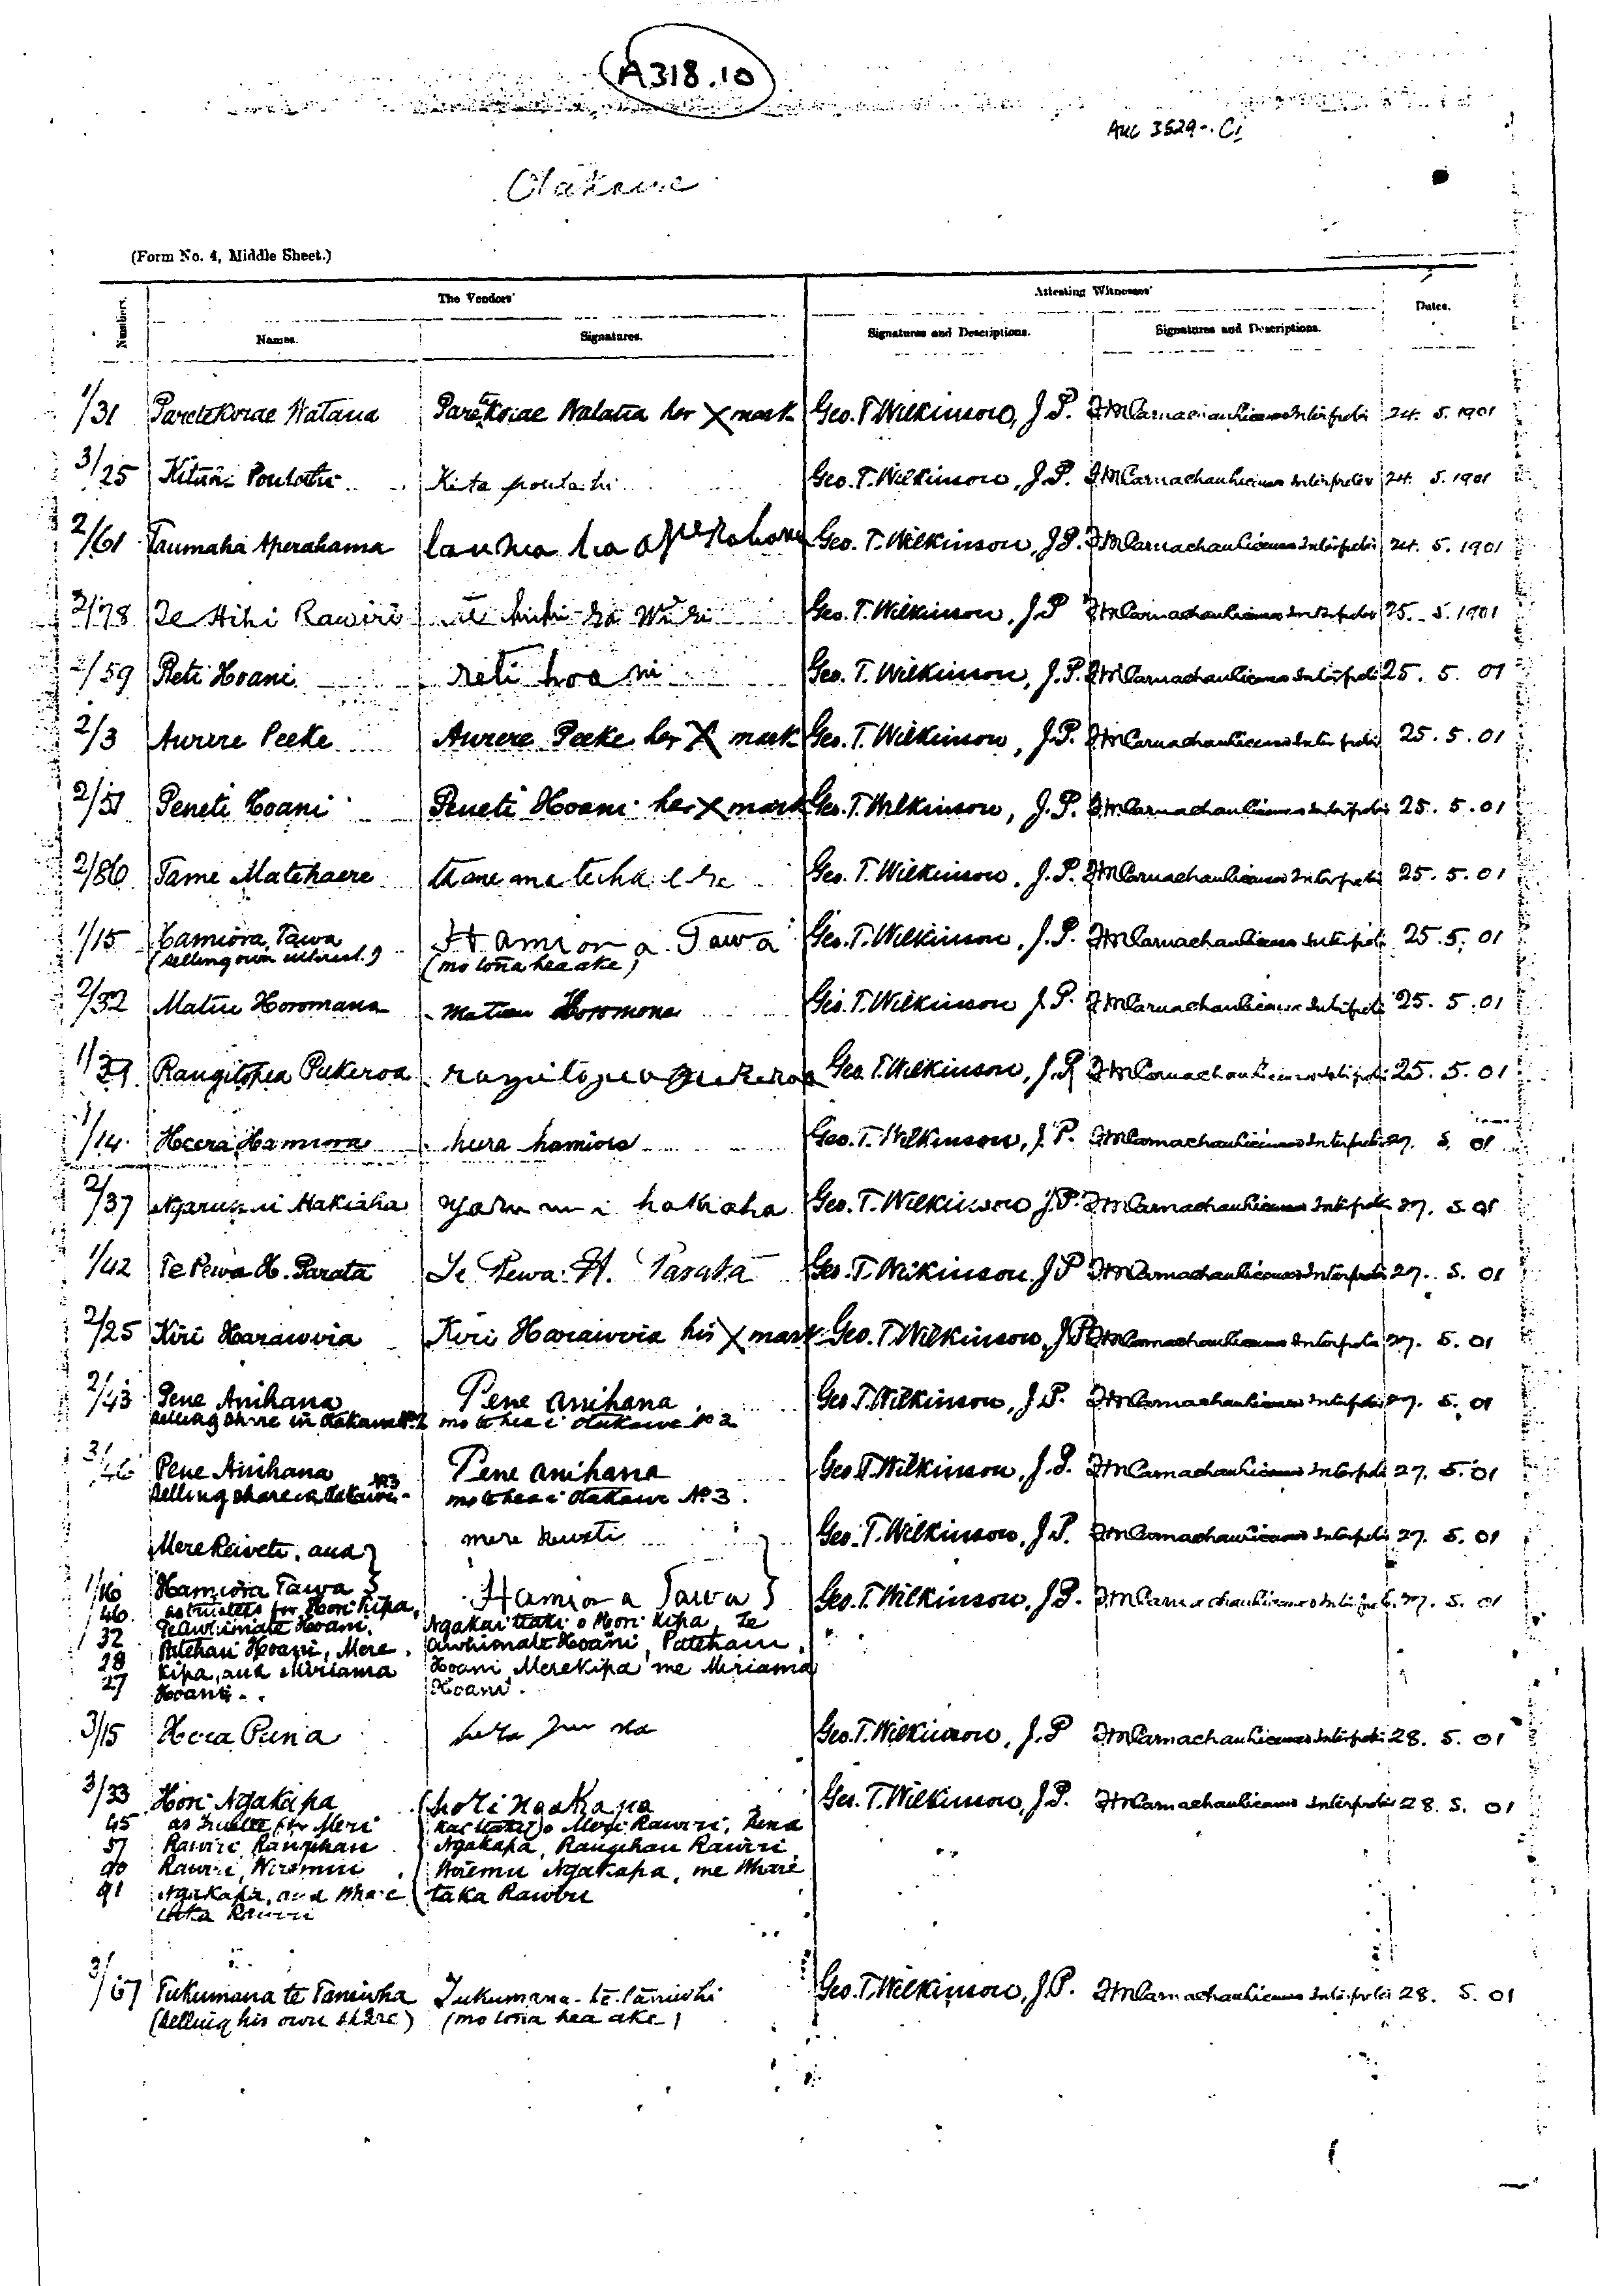 A318.10
Auc 3529-C1
Otakawe
(Form No. 4, Middle Sheet.)
Numbers. The Vendors' Attesting Witnesses' Dates.
Names. Signatures. Signatures and Descriptions. Signatures and Descriptions.
1/31 Paretekorae Watana Paretekorae Watana her X mark Geo. T. Wilkinson, J.P. Licensed Interpreter 24. 5. 1901
3/25 Poutohi Kita poutohi Geo. T. Wilkinson, J.P. Licensed Interpreter 24. 5. 1901
2/61 Taumaha Aperahama taumaha aperahama Geo. T. Wilkinson, J.P. Licensed Interpreter 24. 5. 1901
2/78 Te Hihi Rawiri te hihi ra wi ri Geo. T. Wilkinson, J.P. Licensed Interpreter 25. 5. 1901
2/59 Reti Hoani reti hoani Geo. T. Wilkinson, J.P. Licensed Interpreter 25. 5. 01
2/3 Aurere Peeke Aurere Peeke her X mark Geo. T. Wilkinson, J.P. Licensed Interpreter 25. 5. 01
2/51 Peneti Hoani Peneti Hoani her X mark Geo. T. Wilkinson, J.P. Licensed Interpreter 25. 5. 01
2/86 Tame Matehaere Geo. T. Wilkinson, J.P. Licensed Interpreter 25. 5. 01
1/15 Hamiora Tawa Hamiora Tawa Geo. T. Wilkinson, J.P. Licensed Interpreter 25. 5. 01
(selling own interest.) (mo tona hea ake)
2/32 Matiu Horomana Matiu Horomona Geo. T. Wilkinson J.P. Licensed Interpreter 25. 5. 01
1/39 Rangitopea Pukeroa rangitopea pukeroa Geo. T. Wilkinson, J.P. Licensed Interpreter 25. 5. 01
1/14 Heera Hamiora hera hamiora Geo. T. Wilkinson, J.P. Licensed Interpreter 27. 5. 01
2/37 Hakiaha hakiaha Geo. T. Wilkinson J.P. Licensed Interpreter 27. 5. 01
1/42 Te Pewa H. Parata Te Pewa H. Parata Geo. T. Wilkinson J.P. Licensed Interpreter 27. 5. 01
2/25 Kiri Harawira Kiri Harawira his X mark Geo. T. Wilkinson, J.P. Licensed Interpreter 27. 5. 01
2/43 Pene Anihana Pene anihana Geo. T. Wilkinson, J.P. Licensed Interpreter 27. 5. 01
selling share in Otakawe No. 2 mo te hea i Otakawe No 2
3/46 Pene Anihana Pene anihana Geo. T. Wilkinson, J.P. Licensed Interpreter 27. 5. 01
selling share in Otakawe No 3 mo te hea i Otakawe No. 3.
Mere Reweti, and mere reweti Geo. T. Wilkinson, J.P. Licensed Interpreter 27. 5. 01
1/16 Hamiora Tawa Hamiora Tawa Geo. T. Wilkinson, J.P. Licensed Interpreter 27. 5. 01
46 as trustees for Hori Kipa, Ngakaitiaki o Hori Kipa, Te
32 Te Awhimate Hoani, Awhimate Hoani, Patehau
28 Patehau Hoani, Mere Hoani, Mere Kipa me Miriama
27 Kipa, and Miriama Hoani.
Hoani.
3/15 Heea Puna Geo. T. Wilkinson, J.P. Licensed Interpreter 28. 5. 01
3/33 Hori Ngakapa hori ngakapa Geo. T. Wilkinson, J.P. Licensed Interpreter 28. 5. 01
45 as trustee for Meri kaitiaki o Meri Rawiri, Rena
57 Rawiri, Rangihau Ngakapa, Rangihau Rawiri
90 Rawiri, Wiremu Wiremu Ngakapa, me Whare
91 Ngakapa, and Whare taka Rawiri
taka Rawiri
3/67 Tukumana te Taniwha Tukumana te taniwha Geo. T. Wilkinson, J.P. Licensed Interpreter 28. 5. 01
(selling his own share) (mo tona hea ake)